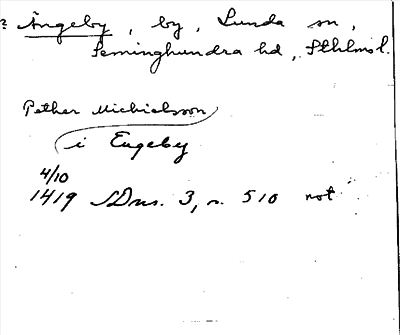 ? Ängeby, by, Lunda sn,
Seminghundra hd, Sthlms l.
Pether Michielsson
i Engeby
4/10
1419 SDns. 3, s. 510 not